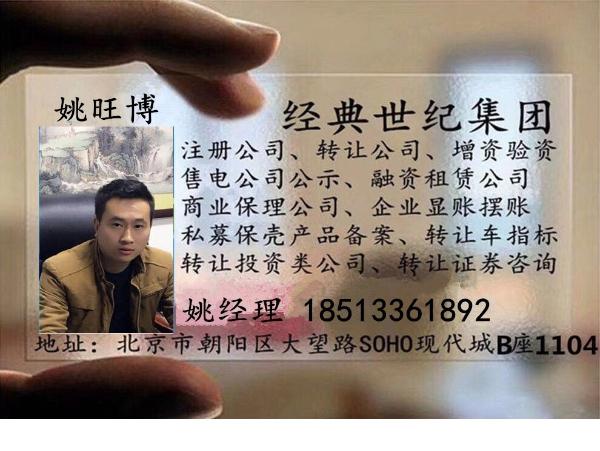 姚旺博
经典世纪集团
注册公司、转让公司、增资验资
售电公司公示、融资租赁公司
商业保理公司、企业显账摆账
私募保壳产品备案、转让车指标
转让投资类公司、转让证券咨询
姚经理 18513361892
地址：北京市朝阳区大望路SOHO现代城B座1104